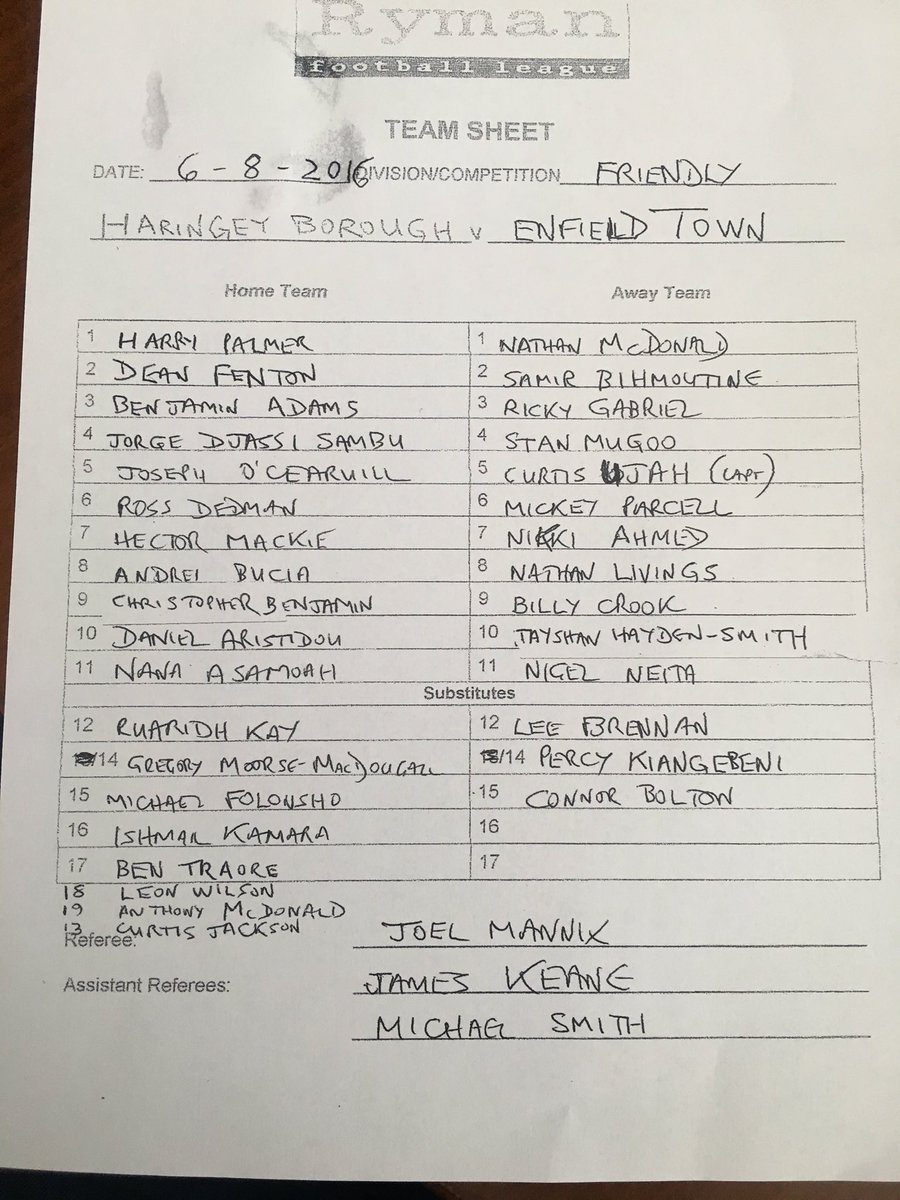 Ryman
football league
TEAM SHEET
DATE: 6-8-2016 DIVISION/COMPETITION FRIENDLY
HARINGEY BOROUGH v ENFIELD TOWN
Home Team Away Team
1 HARRY PALMER 1 NATHAN McDONALD
2 DEAN FENTON 2 SAMIR BIHMOUTINE
3 BENJAMIN ADAMS 3 RICKY GABRIEL
4 JORGE DJASSI SAMBU 4 STAN MUGOO
5 JOSEPH O'CEARUILL 5 CURTIS UJAH (CAPT)
6 ROSS DEDMAN 6 MICKEY PARCELL
7 HECTOR MACKIE 7 NIKKI AHMED
8 ANDREI BUCIA 8 NATHAN LIVINGS
9 CHRISTOPHER BENJAMIN 9 BILLY CROOK
10 DANIEL ARISTIDOU 10 TAYSHAN HAYDEN-SMITH
11 NANA ASAMOAH 11 NIGEL NEITA
Substitutes
12 RUARIDH KAY 12 LEE BRENNAN
/14 GREGORY MOORSE-MACDOUGALL /14 PERCY KIANGEBENI
15 MICHAEL FOLONSHO 15 CONNOR BOLTON
16 ISHMAL KAMARA 16
17 BEN TRAORE 17
18 LEON WILSON
19 ANTHONY McDONALD
13 CURTIS JACKSON
Referee: JOEL MANNIX
Assistant Referees: JAMES KEANE
MICHAEL SMITH